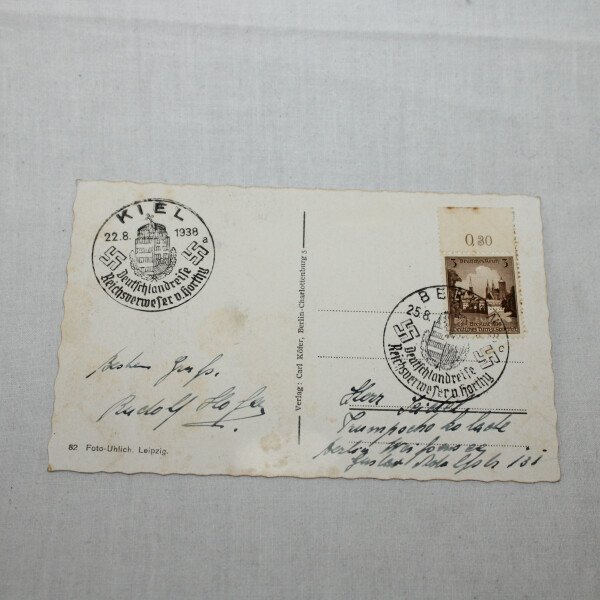 KIEL
22.8. 1938
a
Deutschlandreise
Reichsverweser v. Horthy
Besten Gruß.
Rudolf
82 Foto-Uhlich. Leipzig.
Verlag: Carl Köfer, Berlin-Charlottenburg 5
0,30
3
Deutsches Reich
Breslau 1938
BE
25.8.
c
Deutschlandreise
Reichsverweser v. Horthy
Herr
Berlin
Gustav Adolfstr 131